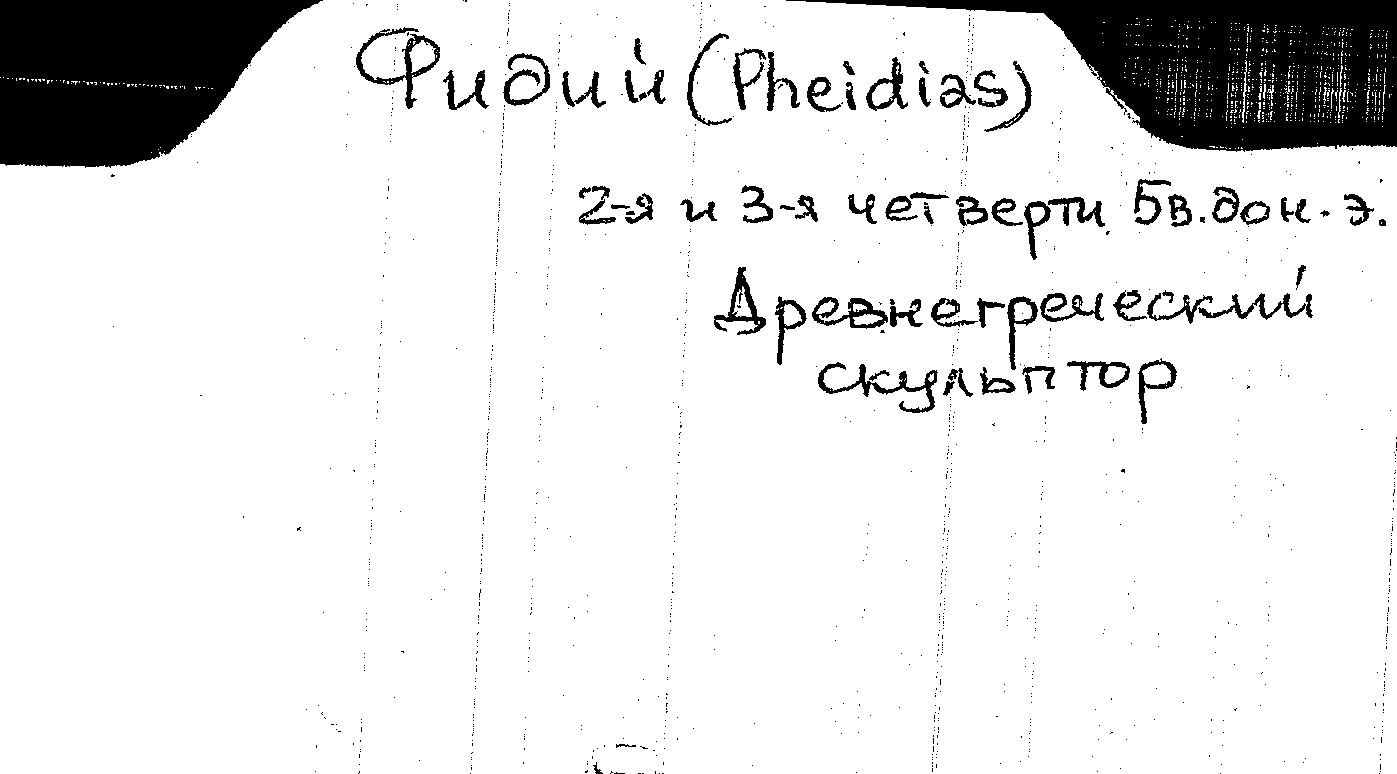 Фидий (Pheidias)
2-я и 3-я четверти 5в. до н. э.
Древнегреческий
скульптор